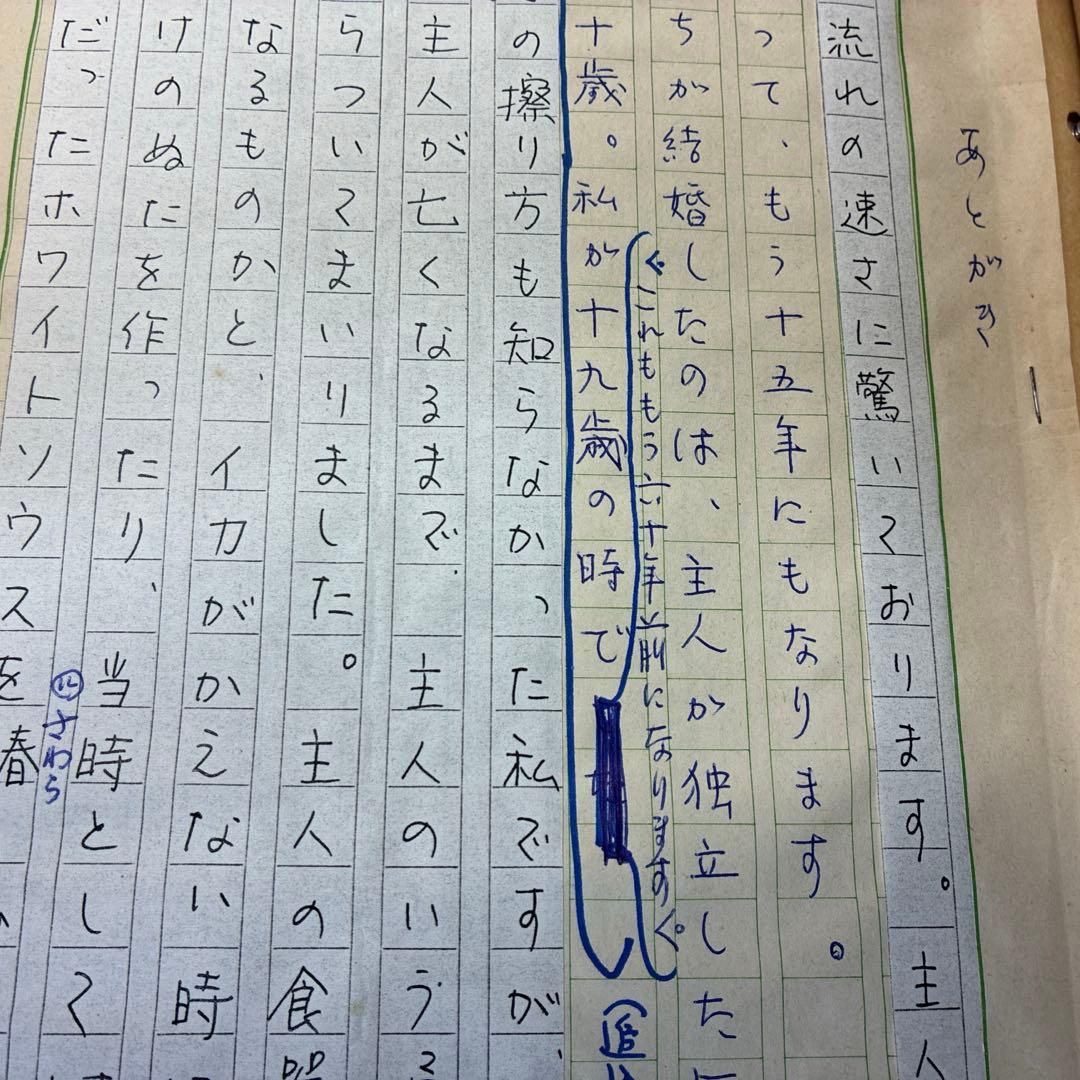 あとがき
流れの速さに驚いております。主人
って、もう十五年にもなります。
ちが結婚したのは、主人が独立した
これももう六十年前になります
十歳。私が十九歳の時で
の擦り方も知らなかった私ですが、
主人が亡くなるまで、主人のいう
らついてまいりました。主人の食
なるものかと、イカがかえない時
けのぬたを作ったり、当時として
にさわら
だったホワイトソウスを春